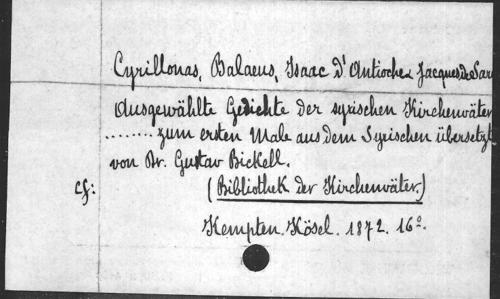 Cyrillonas, Balaeus, Isaac d'Antioche, Jacques de Sar
Ausgewählte Gedichte der syrischen Kirchenväter
......... zum ersten Male aus dem Syrischen übersetzt
von Dr. Gustav Bickell.
cf:
(Bibliothek der Kirchenväter.)
Kempten. Kösel. 1872. 16º.